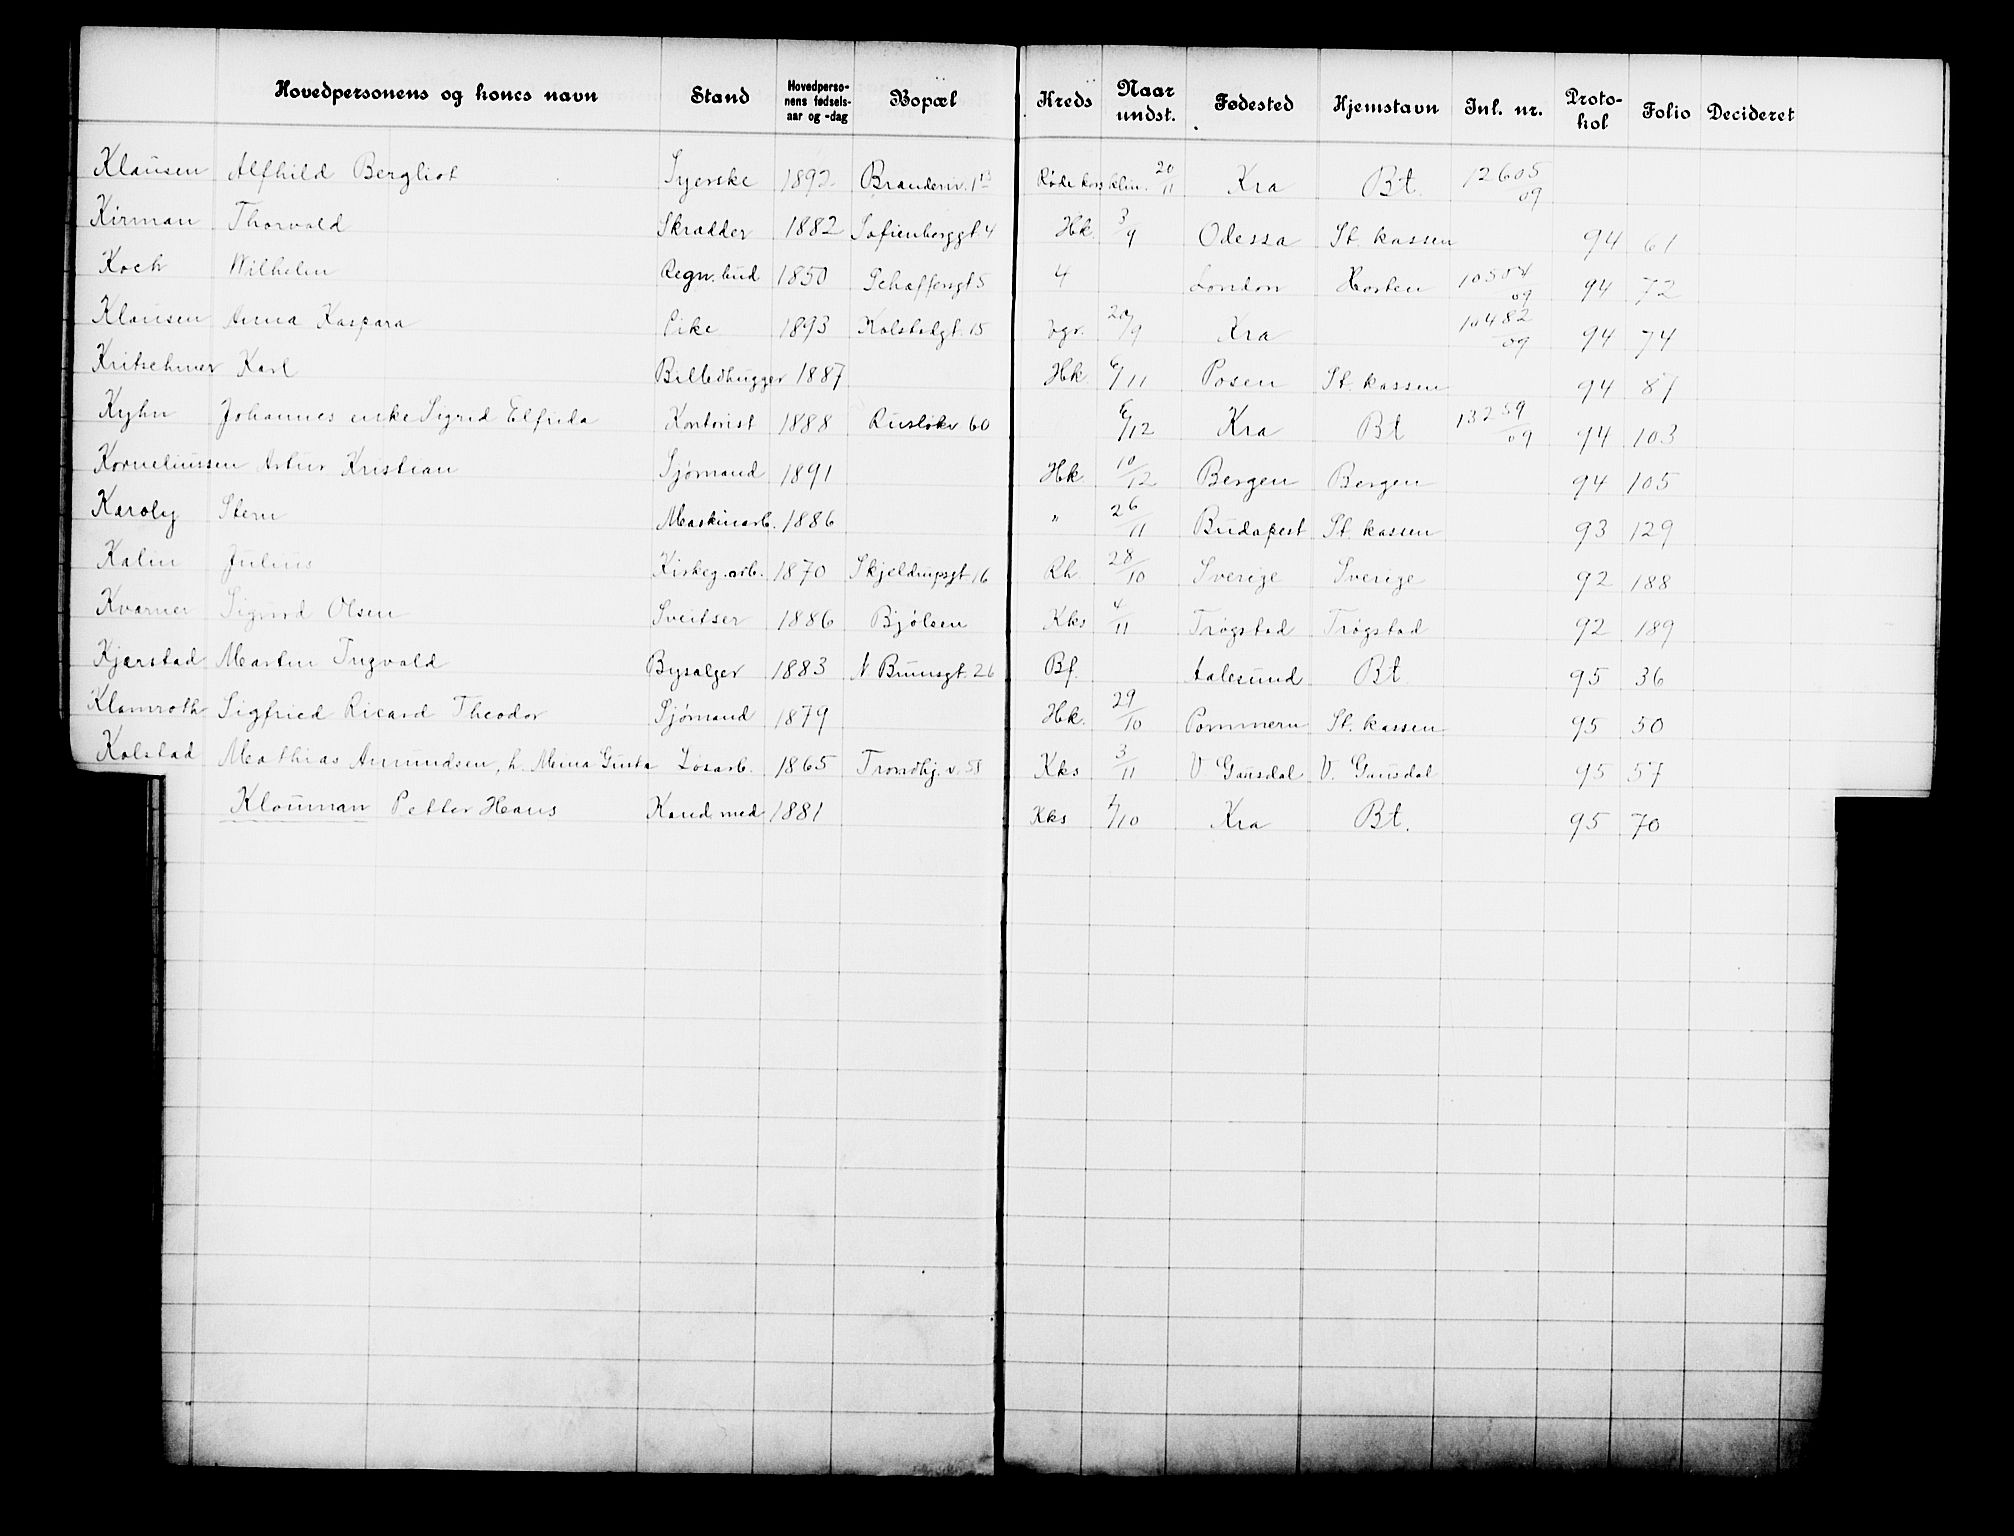 Hovedpersonens og kones navn Stand Hovedperso-nens fødsels-aar og -dag Bopæl Kreds Naar undst. Fødested Hjemstavn Inl. nr. Proto-kol Folio Decideret
Klausen Alfhild Bergliot Syerske 1892 Kors klin. 20/11 Kra Bt. 12605/09
Kirman Thorvald Skrædder 1882 Sofienberggt 4 Hk. 3/9 Odessa St. kassen 94 61
Koch Wilhelm Regn. bud 1850 Schaffersgt 5 4 London Horten 94 72
Klausen Anna Kaspara Pike 1893 Kolstadgt. 15 20/9 Kra 10482/09 94 74
Kritschmer Karl Billedhugger 1887 Hk 6/11 Posen St. kassen 94 87
Kyhn Johannes enke Sigrid Elfrida Kontorist 1888 Rusløkv 60 6/12 Kra Bt 13259/09 94 103
Korneliussen Artur Kristian Sjømand 1891 Hk 10/12 Bergen Bergen 94 105
Karoly Stern Maskinarb. 1886 " 26/11 Budapest St. kassen 93 129
Kalin Julius Kirkeg. arb. 1870 Skjeldrupsgt 16 Rh. 28/10 Sverige Sverige 92 188
Kvarner Sigurd Olsen Sveitser 1886 Bjølsen Kks 4/11 Trøgstad Trøgstad 92 189
Kjærstad Martin Ingvald Bysælger 1883 N. Brunsgt. 26 Bf. Aalesund Bt 95 36
Klamroth Sigfried Ricard Theodor Sjømand 1879 Hk. 29/10 Pommern St. kassen 95 50
Kolstad Mathias Amundsen, h. Mina Gusta Løsarb. 1865 Trondhj. v. 58 Kks 3/11 V Gausdal V. Gausdal 95 57
Klouman Petter Hans Kand. med 1881 Kks /10 Kra Bt. 95 70